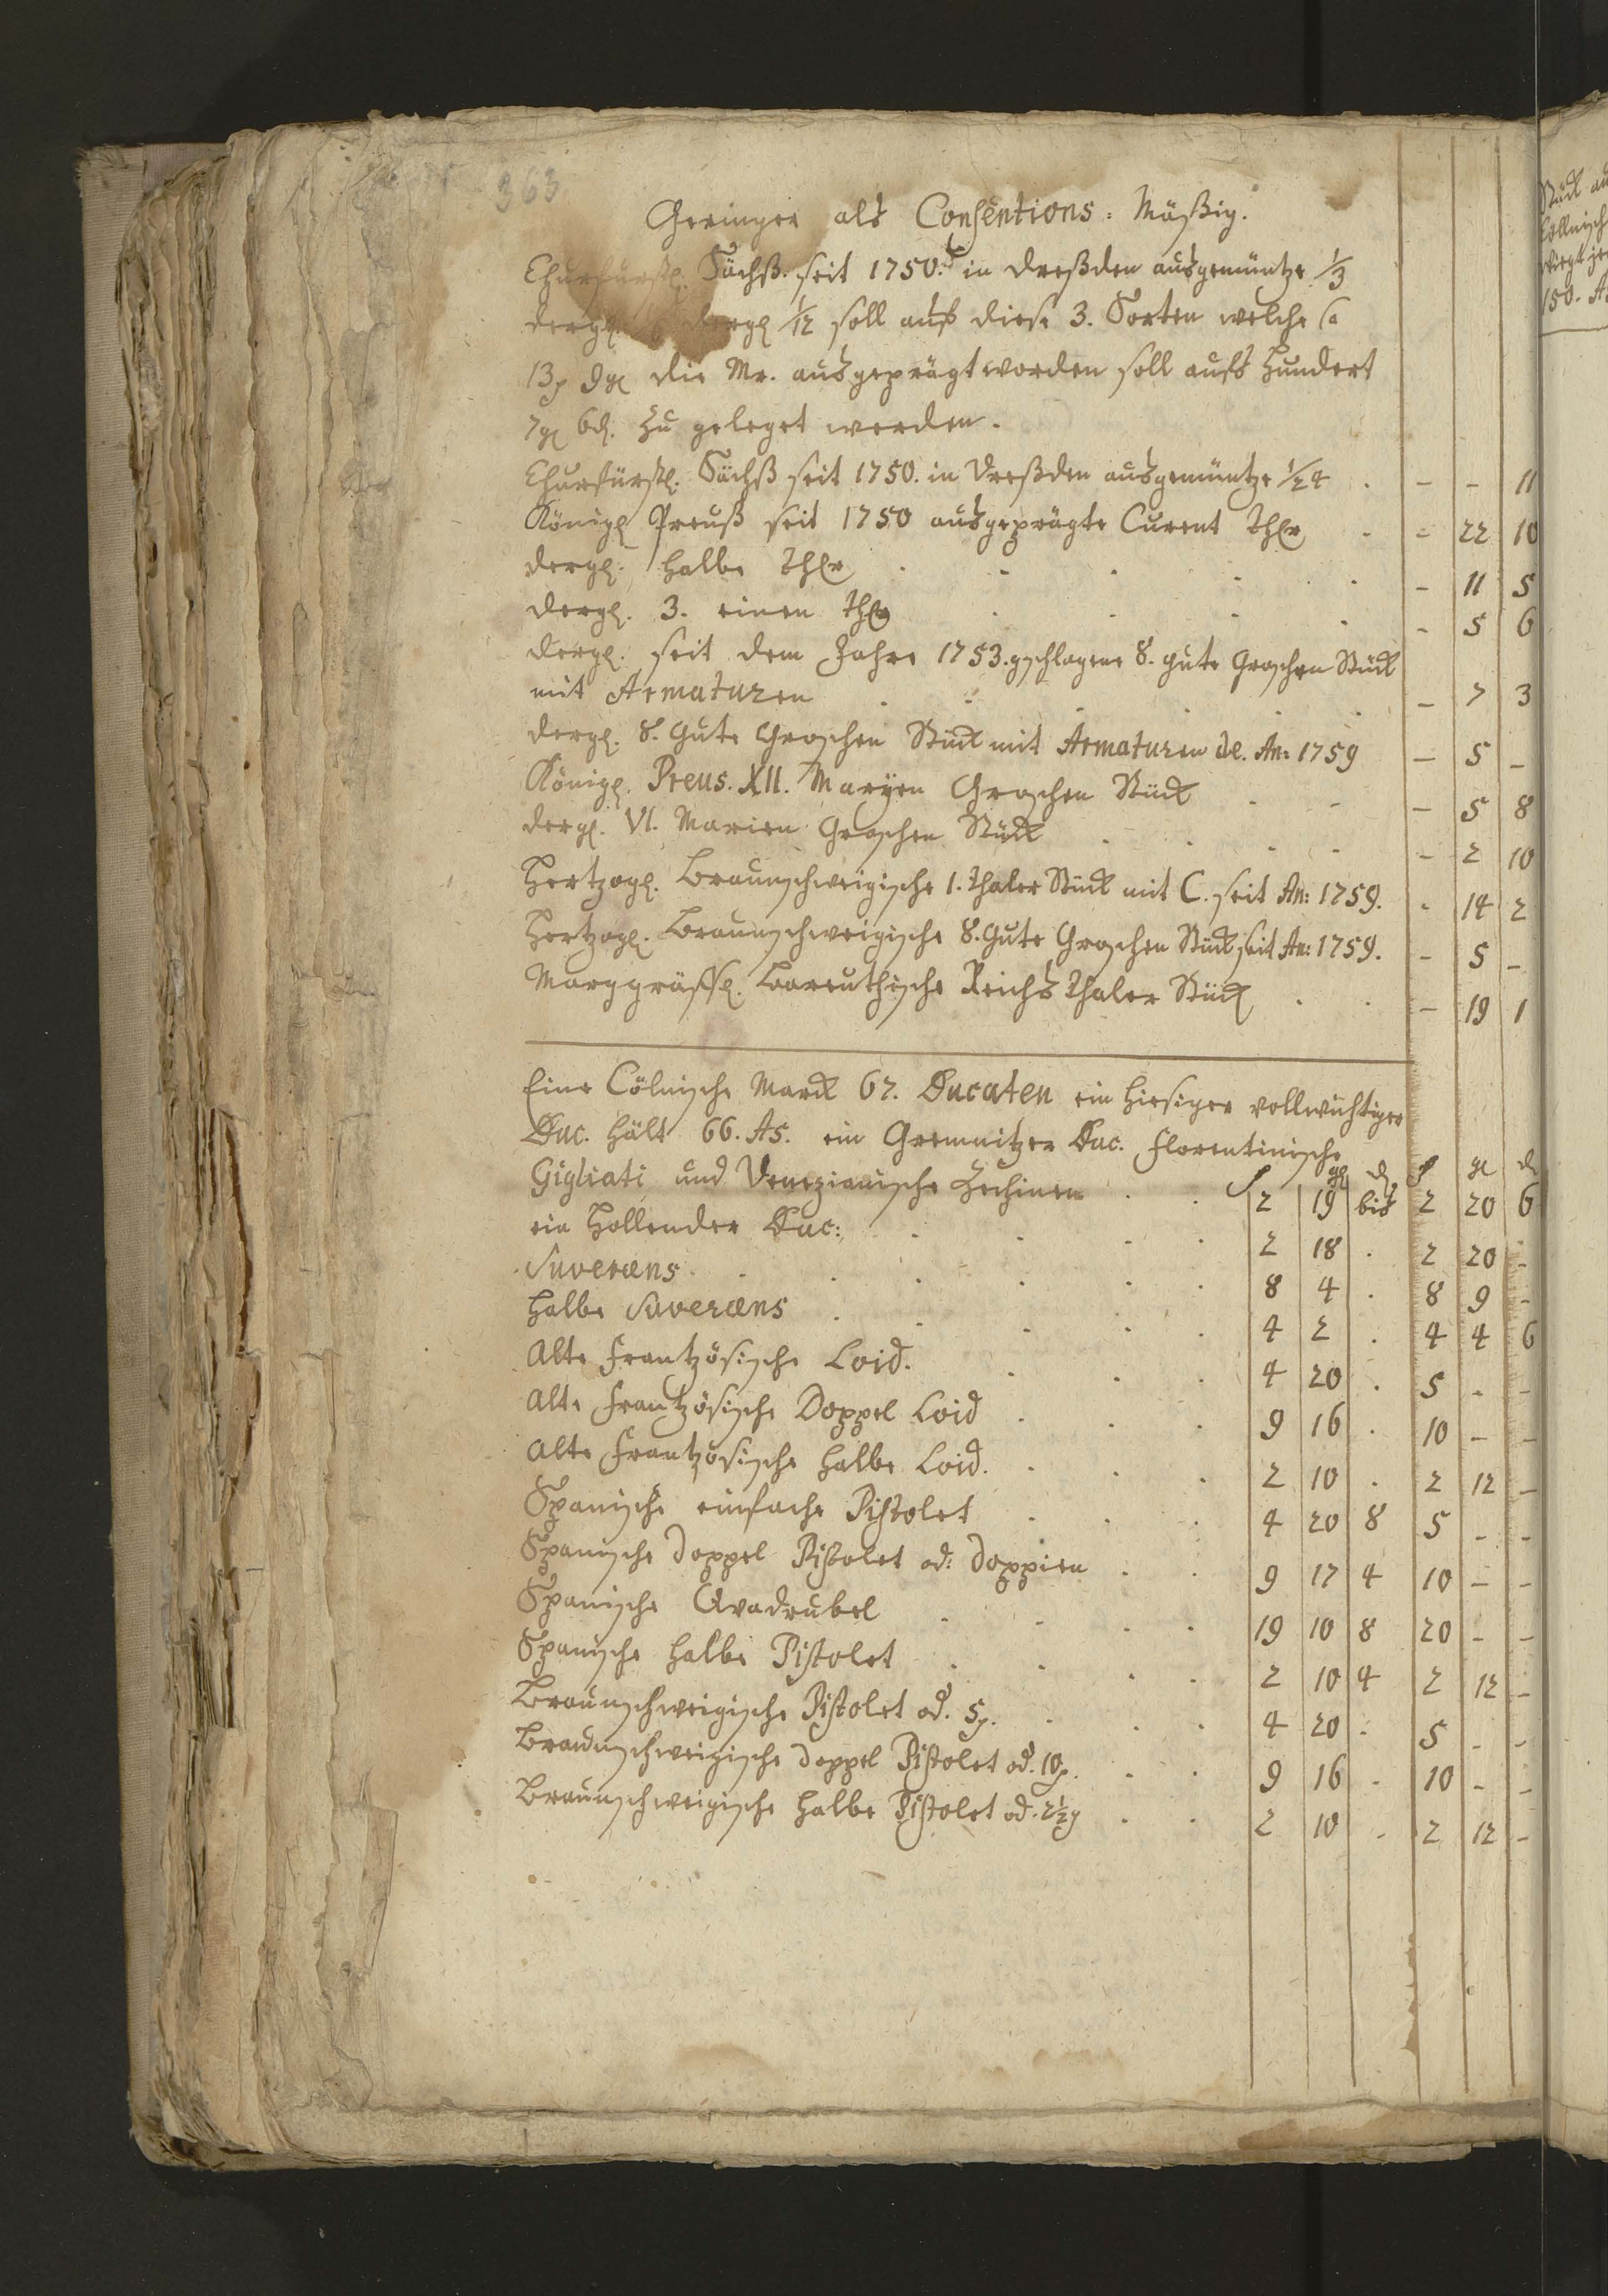 363
Geringer als Consentions = Mäßig.
Churfürstl. Sächß. seit 1750. in Dreßden ausgemüntze 1/3
dergl. dergl 1/12 soll auf diese 3. Sorten welche
13 9 gl die Mr. ausgeprägt worden soll aufs Hundert
7 gl 6 d. zu geleget werden.
Churfürstl. Sächß seit 1750. in Dreßden ausgemüntze 1/24 . - - 11
Königl Preuß seit 1750 ausgeprägte Curent Thlr . - 22 10
dergl. halbe Thlr . . . . . - 11 5
dergl. 3. einen Thlr . . . . - 5 6
dergl. seit dem Jahre 1753. gschlagene 8. gute Groschen Stück
mit Armaturen . . . . . . - 7 3
dergl. 8. gute Groschen Stück mit Armaturen de. An: 1759 - 5 -
Königl. Preus. XII. Maryen Groschen Stück . . - 5 8
dergl. VI. Marien Groschen Stück . . . . - 2 10
Hertzogl. Braunschweigische 1. Thaler Stück mit C. seit An: 1759. - 14 2
Hertzogl. Braunschweigische 8. gute Groschen Stück seit An: 1759. - 5 -
Marggräffl. Bareuthische Reichs Thaler Stück . . - 19 1
Eine Cölnische Marck 67. Ducaten ein hiesiger vollwichtiger
Duc. hält 66. As. ein Cremnitzer Duc. Florentinische
gl d gl d
Gigliati und Venezianische Zechinen . . 2 19 bis 2 20 6
ein Hollender Duc: . . . . 2 18 . 2 20 -
Suveræns . . . . . . 8 4 . 8 9 -
halbe Suveræns . . . . . 4 2 . 4 4 6
Alte Frantzösische Loid. . . . 4 20 . 5 - -
Alte Frantzösische Doppel Loid . . . 9 16 . 10 - -
Alte Frantzösische halbe Loid. . . . 2 10 . 2 12 -
Spanische einfache Pistolet . . . 4 20 8 5 - -
Spanische doppel Pistolet od: doppien . . 9 17 4 10 - -
Spanische Qvadrubel . . . . 19 10 8 20 - -
Spanische halbe Pistolet . . . . 2 10 4 2 12 -
Braunschweigische Pistolet od. 5 . . . . 4 20 . 5 - -
Braunschweigische doppel Pistolet od. 10 . . . 9 16 . 10 - -
Braunschweigische halbe Pistolet od. 2 1/2 . . 2 10 . 2 12 -
Stück
Cöllnisch
150.